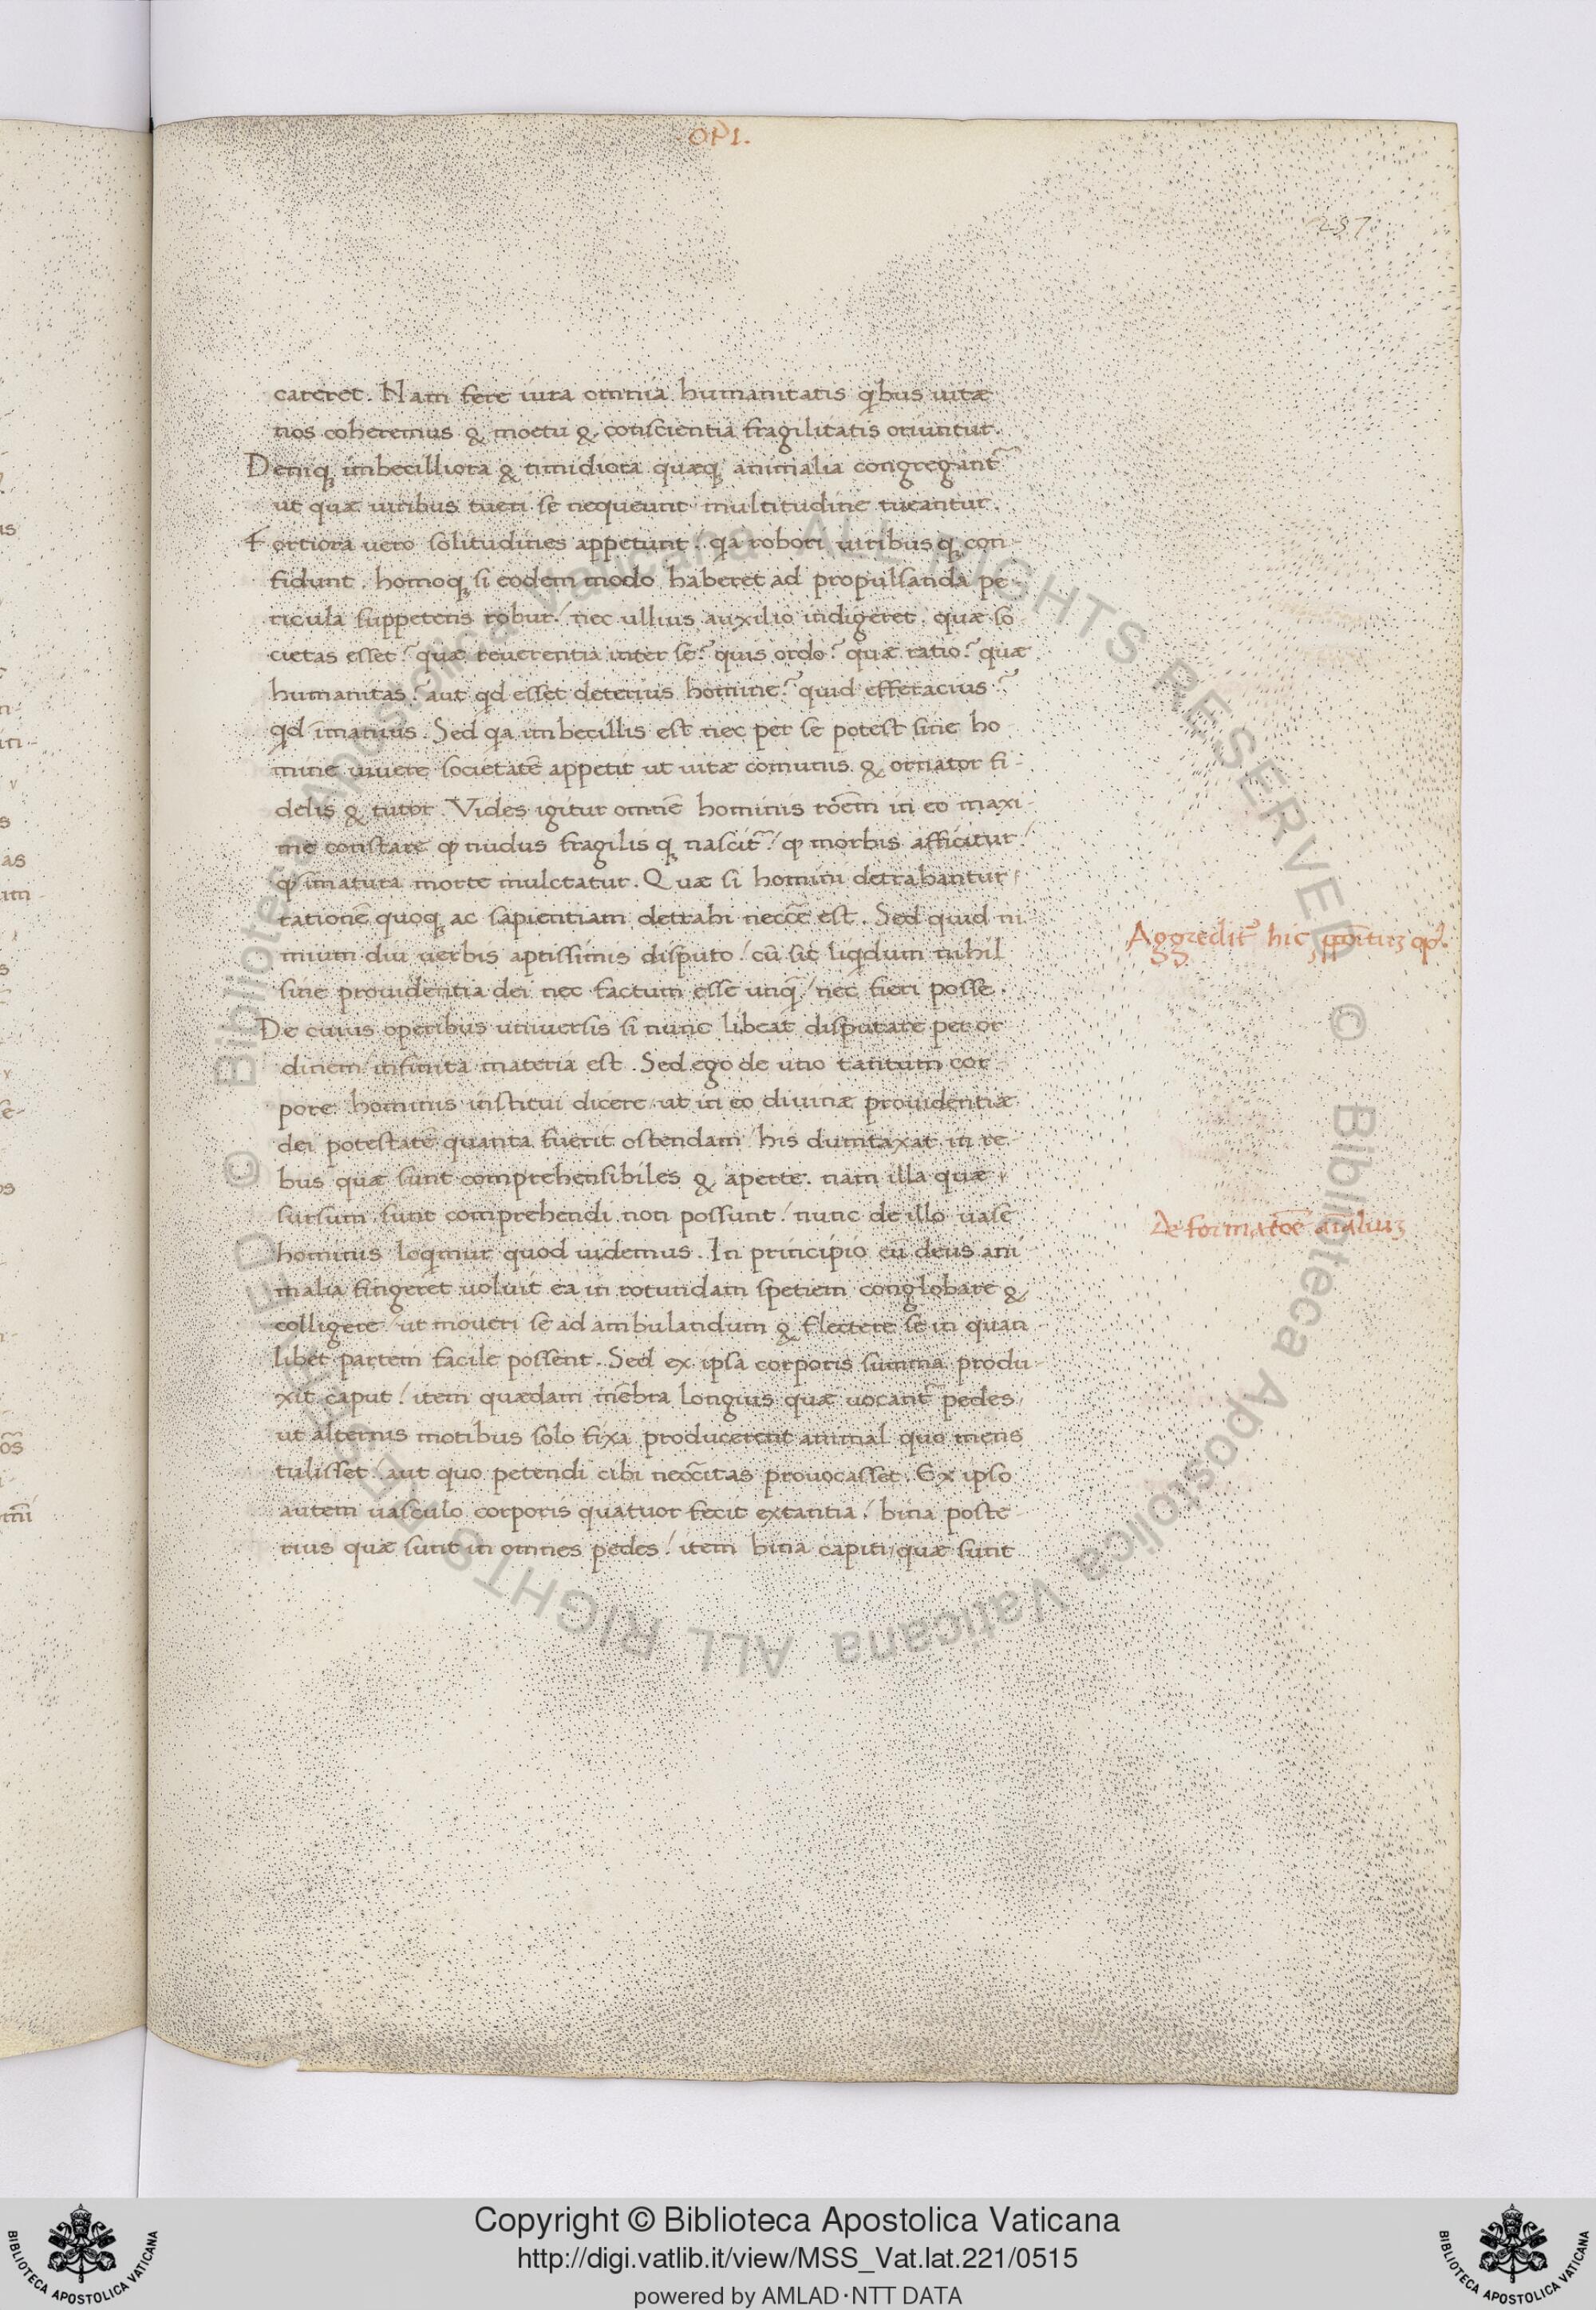 OPI.
257
careret. Nam fere iura omnia humanitatis qibus uitæ
nos coheremus & moetu & conscientia fragilitatis oriuntur.
Deniqꝫ imbecilliora & timidiora quæqꝫ animalia congregant᷑
ut quæ uiribus tueri se nequeunt multitudine tueantur.
Fortiora uero solitudines appetunt / qa robori uiribus qꝫ con-
fidunt. homoqꝫ si eodem modo haberet ad propulsanda pe-
ricula suppetens robur / nec ullius auxilio indigeret. quæ so
cietas esset? quæ reuerentia inter se? quis ordo? quæ ratio? quæ
humanitas? aut qd esset deterius homine? quid efferacius?
qd īmanius. Sed qa imbecillis est nec per se potest sine ho
mine uiuere societatē appetit ut uitæ comunis & ornator fi-
delis & tutor. Vides igitur omnē hominis rōem in eo maxi-
me constare ꝙ nudus fragilis qꝫ nascit᷑ / ꝙ morbis afficitur /
ꝙ īmatura morte mulctatur. Quæ si homini detrahantur /
rationē quoqꝫ ac sapientiam detrahi necc̄e est. Sed quid ni
mium diu uerbis aptissimis disputo / cū sit liqdum nihil
sine prouidentia dei nec factum esse unq̄ / nec fieri posse.
De cuius operibus uniuersis si nunc libeat disputare per or
dinem / infinita materia est. Sed ego de uno tantum cor
pore hominis institui dicere ut in eo diuinæ prouidentiæ
dei potestatē quanta fuerit ostendam / his dumtaxat in re-
bus quæ sunt comprehensibiles & aperte. nam illa quæ
sursum sunt comprehendi non possunt / nunc de illo uase
hominis loqmur quod uidemus. In principio cū deus ani
malia fingeret uoluit ea in rotundam spetiem conglobare &
colligere / ut moueri se ad ambulandum & flectere se in quan
libet partem facile possent. Sed ex ipsa corporis summa produ-
xit caput / item quædam mēbra longius quæ uocant᷑ pedes /
ut alternis motibus solo fixa producerent animal quo mens
tulisset / aut quo petendi cibi necc̄itas prouocasset. Ex ipso
autem uasculo corporis quatuor fecit extantia / bina poste-
rius quæ sunt in omnes pedes / item bina capiti / quæ sunt
Aggredit᷑ hic
De formatōe aīaliuꝫ
© Biblioteca Apostolica Vaticana ALL RIGHTS RESERVED
© Biblioteca Apostolica Vaticana ALL RIGHTS RESERVED
Copyright © Biblioteca Apostolica Vaticana
http://digi.vatlib.it/view/MSS_Vat.lat.221/0515
powered by AMLAD·NTT DATA
BIBLIOTECA APOSTOLICA VATICANA
BIBLIOTECA APOSTOLICA VATICANA